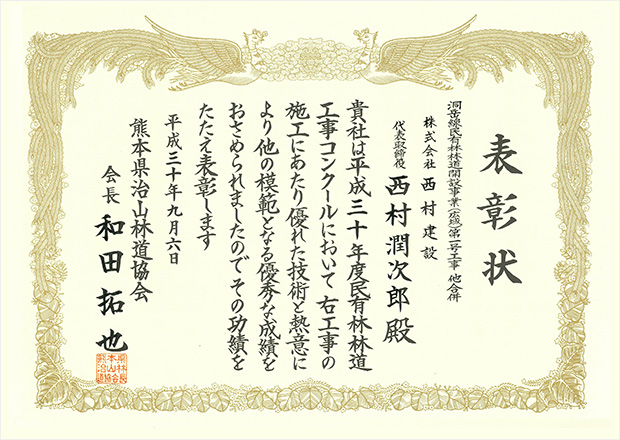 表彰状
洞岳線民有林林道開設事業(広域)第二号工事 他合併
株式会社 西村建設
代表取締役 西村潤次郎 殿
貴社は平成三十年度民有林林道
工事コンクールにおいて右工事の
施工にあたり優れた技術と熱意に
より他の模範となる優秀な成績を
おさめられましたのでその功績を
たたえ表彰します
平成三十年九月六日
熊本県治山林道協会
会長 和田拓也